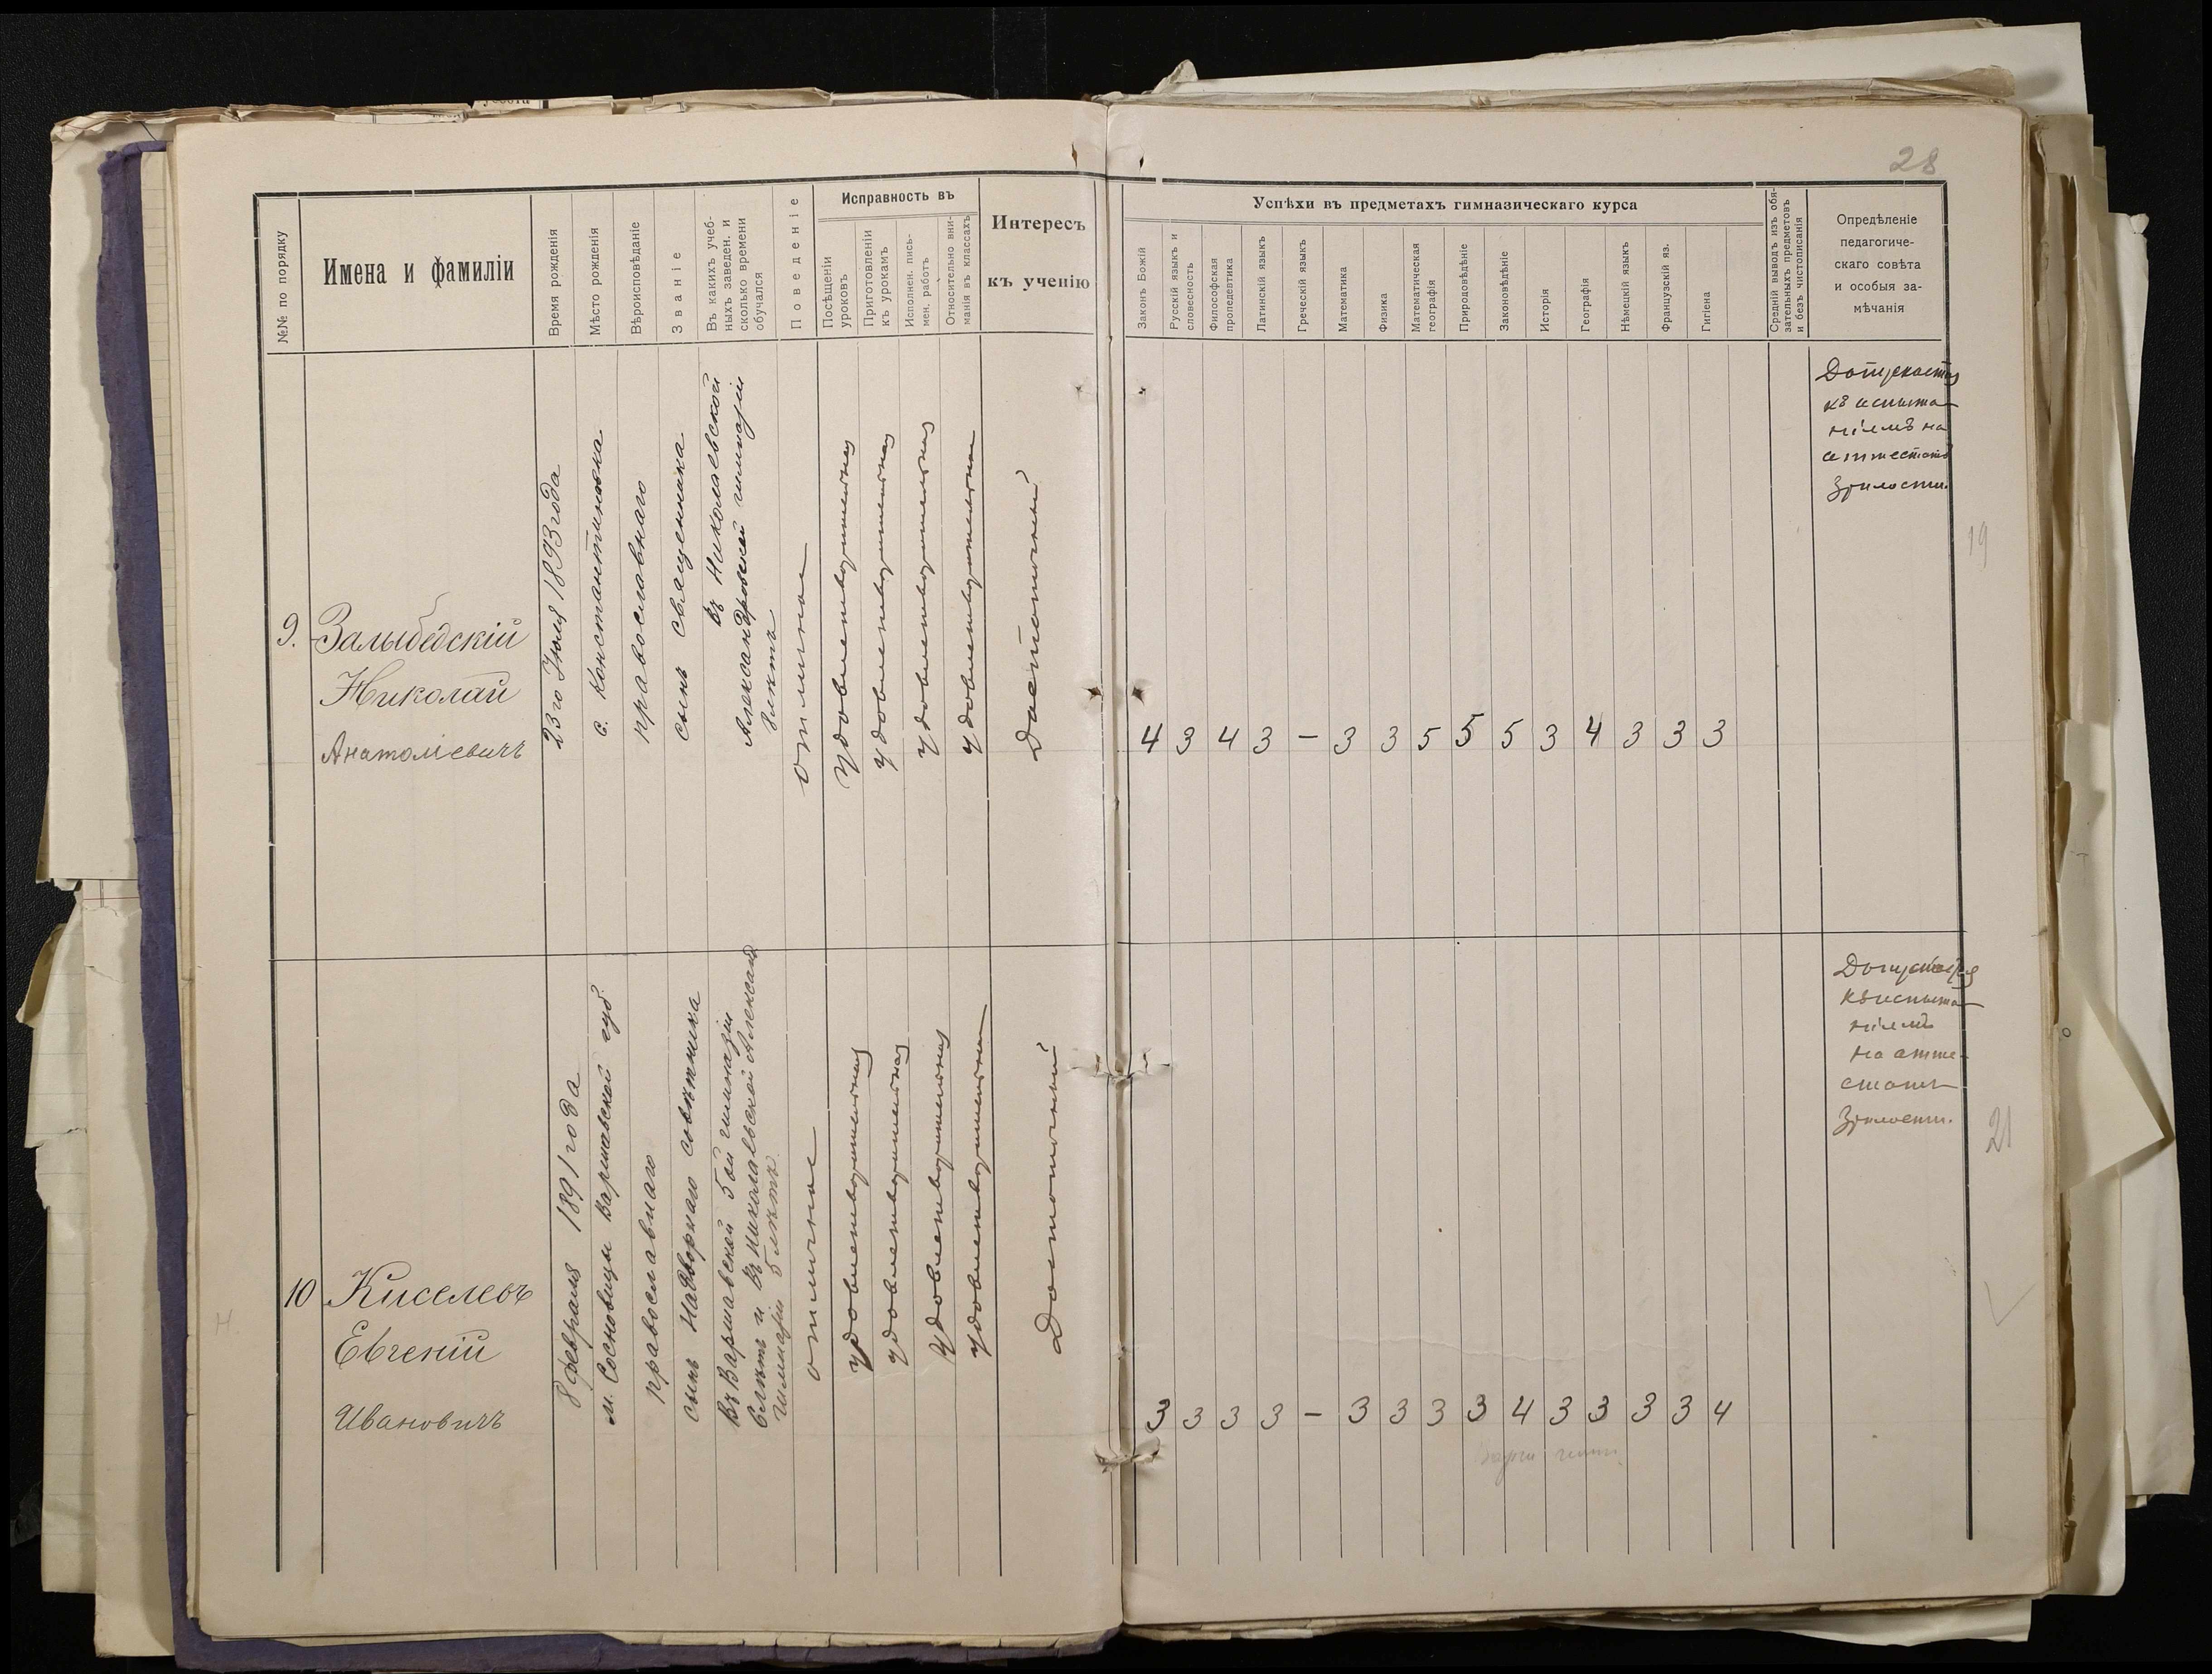 28
№№ по порядку
Имена и фамиліи
Время рожденія
Мѣсто рожденія
Вѣроисповѣданіе
Званіе
Въ какихъ учеб-
ныхъ заведен. и
сколько времени
обучался
Поведеніе
Исправность въ
Посѣщеніи
уроковъ
Приготовленіи
къ урокамъ
Исполнен. пись-
мен. работъ
Относительно вни-
манія въ классахъ
Интересъ
къ ученію
Успѣхи въ предметахъ гимназическаго курса
Законъ Божій
Русскій языкъ и
словесность
Философская
пропедевтика
Латинскій языкъ
Греческій языкъ
Математика
Физика
Математическая
географія
Природовѣдѣніе
Законовѣдѣніе
Исторія
Географія
Нѣмецкій языкъ
Французскій яз.
Гигіена
Средній выводъ изъ обя-
зательныхъ предметовъ
и безъ чистописанія
Опредѣленіе
педагогиче-
скаго совѣта
и особыя за-
мѣчанія
9.
Залыбедскій
Николай
Анатоліевичъ
23го Іюля 1893 года
с. Константиновка
православнаго
сынъ священника
Въ Николаевской
Александровской гимназіи
8 лѣтъ
отличное
удовлетворительная
удовлетворительная
удовлетворительная
удовлетворительная
Достаточный
4 3 4 3 – 3 3 5 5 5 3 4 3 3 3
Допускается
къ испыта-
ніямъ на
аттестатъ
зрѣлости.
19
10
Киселевъ
Евгеній
Ивановичъ
8 февраля 1891 года
м. Сосновицы Варшавской губ.
православнаго
сынъ Надворнаго совѣтника
Въ Варшавской 5ой гимназіи
6 лѣтъ и въ Николаевской Александ
гимназіи 5 лѣтъ
отличное
удовлетворительная
удовлетворительная
удовлетворительная
удовлетворительная
Достаточный
3 3 3 3 – 3 3 3 3 4 3 3 3 3 4
Допускается
къ испыта-
ніямъ
на атте-
статъ
зрѣлости.
21